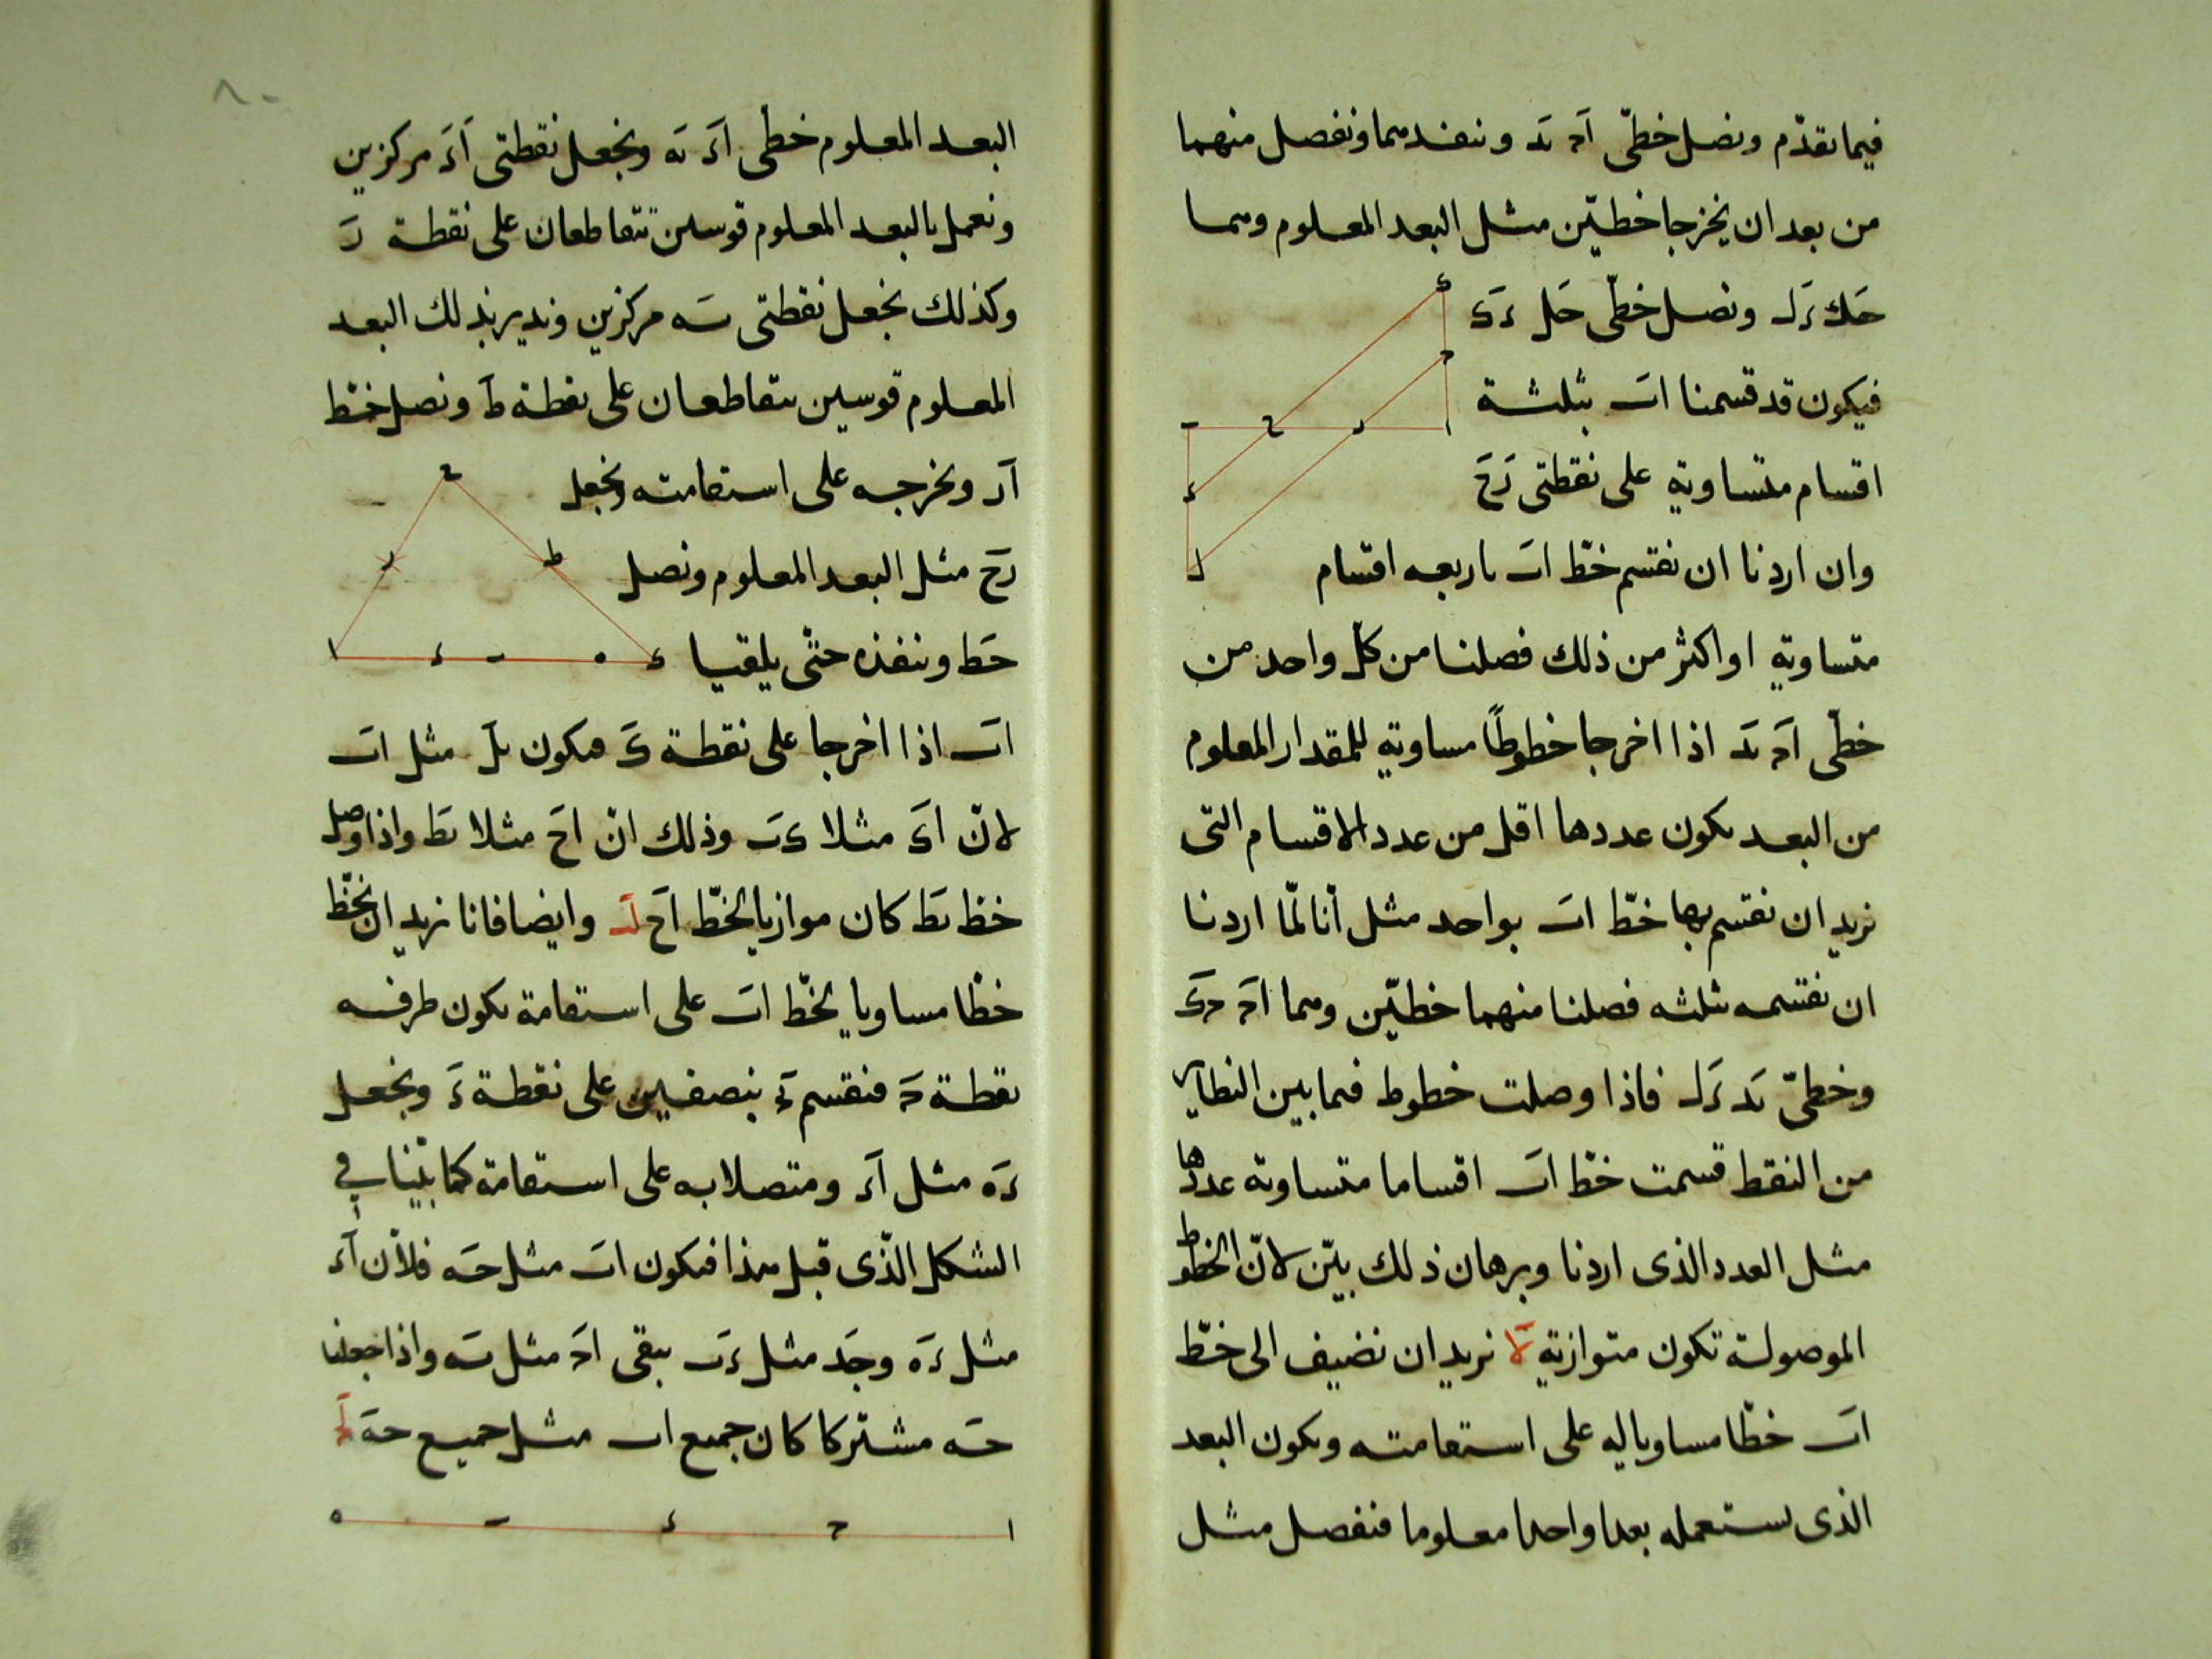 فيما تقدّم ونصل خطّى اح ٮد وننفدهما ونفصل منهما
من بعد ان يخرجا خطيّن مثل البعد المعلوم وهما
حك زل ونصل خطّى حل دى
فيكون قد قسمنا اب بثلثة
اقسام متساوية على نقطتى زح
وان اردنا ان نقسم خطّ اب باربعه اقسام
متساوية او اكثر من ذلك فصلنا من كلّ واحد من
خطّى اح ٮد اذا اخرجا خطوطًا مساوية للمقدار المعلوم
من البعد يكون عددها اقل من عدد الاقسام التى
نريد ان نقسم بها خطّ اب بواحد مثل أنّا لمّا اردنا
ان نقسمه بثلثه فصلنا منهما خطيّن وهما اح حى
وخطىّ ٮد زل فاذا وصلت خطوط فيما بين النظاير
من النقط قسمت خطّ اب اقساما متساوية عددها
مثل العدد الذى اردنا وبرهان ذلك بيّن لانّ الخطوط
الموصولة تكون متوازية لا نريد ان نضيف الى خطّ
اب خطّا مساويا ليه على استقامته ويكون البعد
الذى يستعمله بعدا واحدا معلوما فنفصل مثل
البعد المعلوم خطى اء ٮه ونجعل نقطتى اء مركزين
ونعمل بالبعد المعلوم قوسين تتقاطعان على نقطة ز
وكذلك نجعل نقطتى ٮه مركزين وندير بذلك البعد
المعلوم قوسين يتقاطعان على نقطة ط ونصل خطّ
از ونخرجه على استقامته ونجعل
زح مثل البعد المعلوم ونصل
حط وننفذه حتّى يلقيا
اب اذا اخرجا على نقطة ى فيكون ٮل مثل اب
لانّ اى مثلا ىب وذلك انّ اح مثلا ٮط واذا وصل
خط ٮط كان موازيا لخطّ اح لب وايضا فانا نريد ان نخطّ
خطّا مساويا لخطّ اب على استقامة يكون طرفه
نقطة ح فنقسم بنصفين على نقطة ء ونجعل
ءه مثل اء ومتصلا به على استقامة كما بيّنا في
الشكل الذّى قبل هذا فيكون اب مثل حه فلأن اء
مثل ءه وحد مثل ءب يبقى اح مثل ٮه واذا جعلنا
حه مشتركا كان جميع اب مثل جميع حه لج